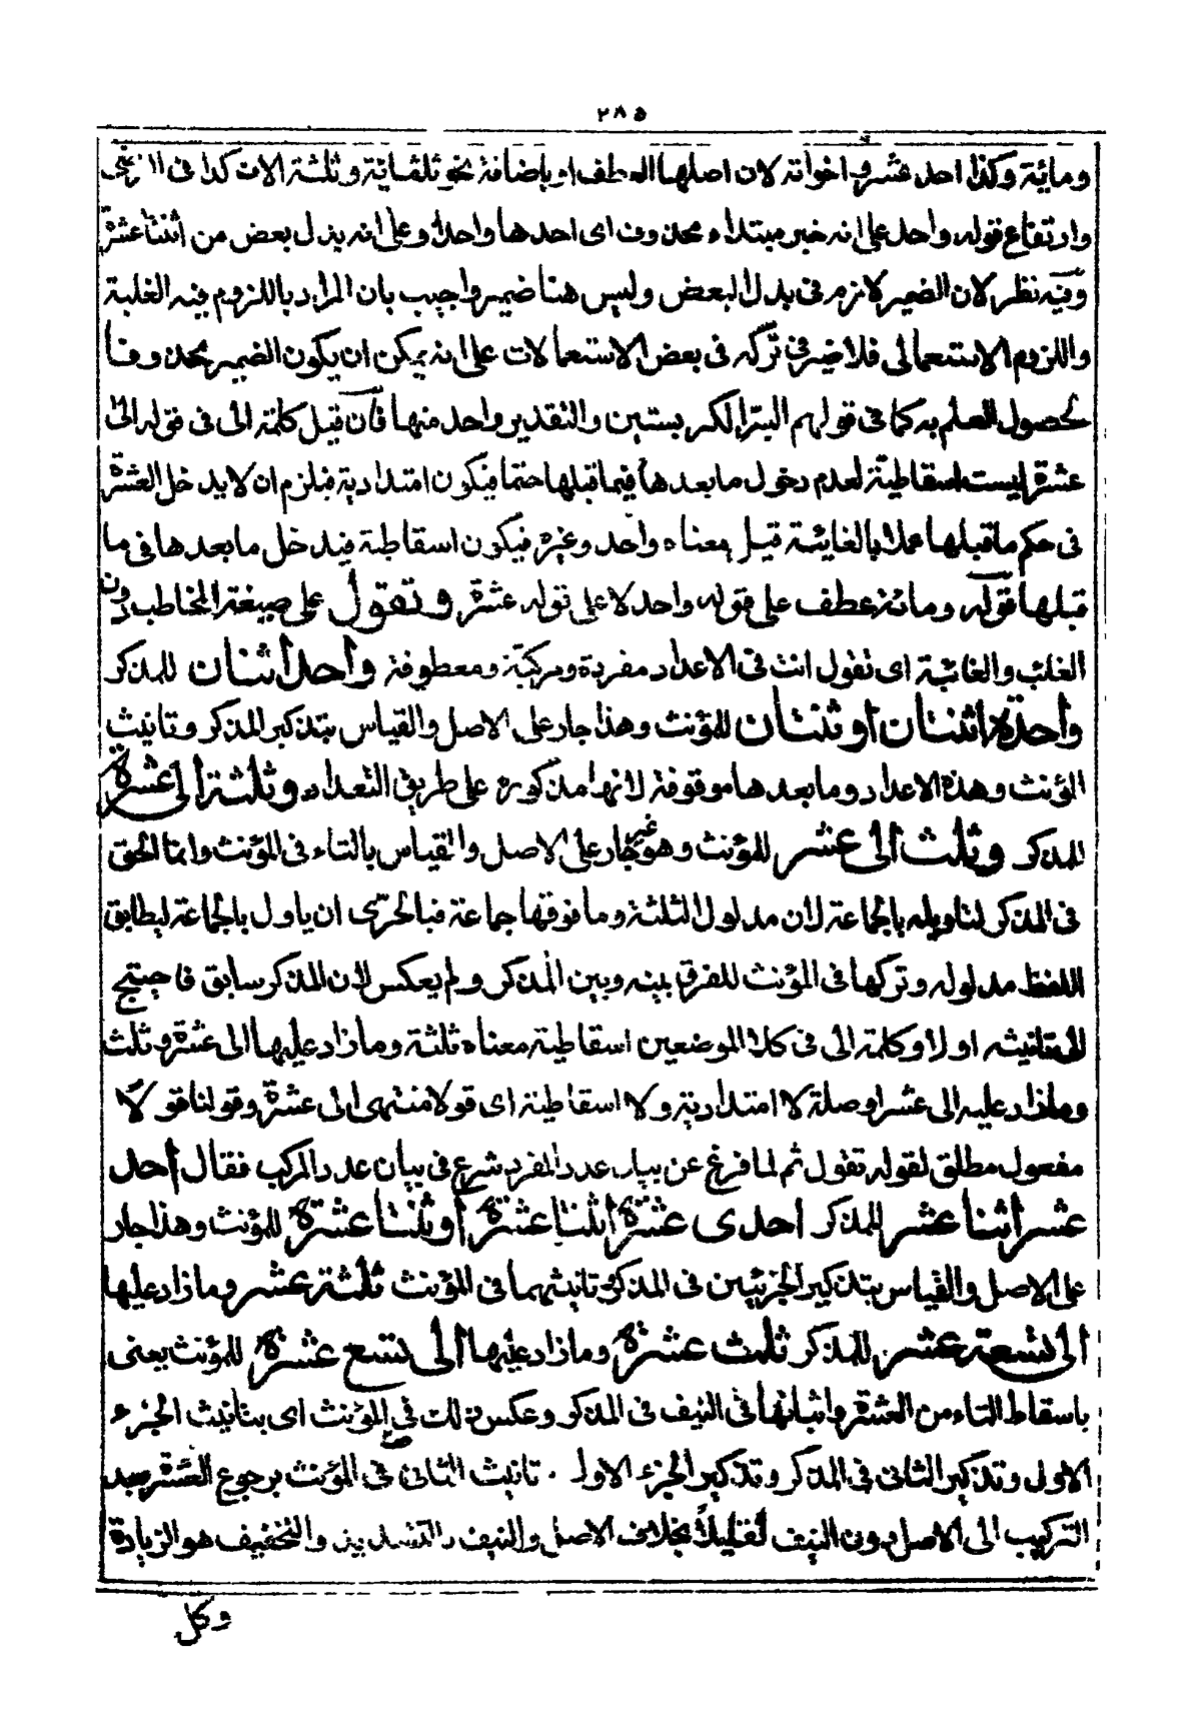 ٢٨٥
ومائية وكذا احد عشر واخواته لان اصلها العطف او باضافة نحو ثلثمائة وثلثة الاف كذا فى الرضى
وارتفاع قوله واحد على انه خبر مبتداء محذوف اى احدها واحد وعلى انه بدل بعض من اثنتا عشرة
وفيه نظر لان الضمير لازم فى بدل البعض وليس هنا ضمير واجيب بان المراد باللزوم فيه الغلبة
واللزوم الاستعمالى فلا ضير فى تركه فى بعض الاستعمالات على انه يمكن ان يكون الضمير محذوفا
لحصول العلم به كما فى قولهم البر الكر بستين والتقدير واحد منها فان قيل كلمة الى فى قوله الى
عشرة ليست اسقاطية لعدم دخول ما بعدها فيما قبلها حتما فيكون امتدادية فيلزم ان لا يدخل العشرة
فى حكم ما قبلها عملا بالغائية قيل معناه واحد وغيره فيكون اسقاطية فيدخل ما بعدها فى ما
قبلها قوله ومائة عطف على قوله واحد لا على قوله عشرة وتقول على صيغة المخاطب دون
الغائب والغائبة اى تقول انت فى الاعداد مفردة ومركبة ومعطوفة واحد اثنان للمذكر
واحدة اثنتان او ثنتان للمؤنث وهذا جار على الاصل والقياس بتذكير المذكر وتانيث
المؤنث وهذه الاعداد وما بعدها موقوفة لانها مذكورة على طريق التعداد وثلثة الى عشرة
للمذكر وثلث الى عشر للمؤنث وهو غير جار على الاصل والقياس بالتاء فى المؤنث وانما الحق
فى المذكر لتاويله بالجماعة لان مدلول الثلثة وما فوقها جماعة فبالحرى ان ياول بالجماعة ليطابق
اللفظ مدلوله وتركها فى المؤنث للفرق بينه وبين المذكر ولم يعكس لان المذكر سابق فاحتيج
الى تانيثه اولا وكلمة الى فى كلا الموضعين اسقاطية معناه ثلثة وما زاد عليها الى عشرة وثلث
وما زاد عليه الى عشر او صلة لا امتدادية ولا اسقاطية اى قولا منتهى الى عشرة وقولنا قولا
مفعول مطلق لقوله تقول ثم لما فرغ عن بيان عدد المفرد شرع فى بيان عدد المركب فقال احد
عشر اثنا عشر للمذكر احدى عشرة اثنتا عشرة او ثنتا عشرة للمؤنث وهذا جار
على الاصل والقياس بتذكير الجزئين فى المذكر وتانيثهما فى المؤنث ثلثة عشر وما زاد عليها
الى تسعة عشر للمذكر ثلث عشرة وما زاد عليها الى تسع عشرة للمؤنث يعنى
باسقاط التاء من العشرة واثباتها فى النيف فى المذكر وعكس ذلك فى المؤنث اى بتانيث الجزء
الاول وتذكير الثانى فى المذكر وتذكير الجزء الاول وتانيث الثانى فى المؤنث برجوع العشرة بعد
التركيب الى الاصل دون النيف تقليلا بخلاف الاصل والنيف والتخفيف هو الزيادة
وكل